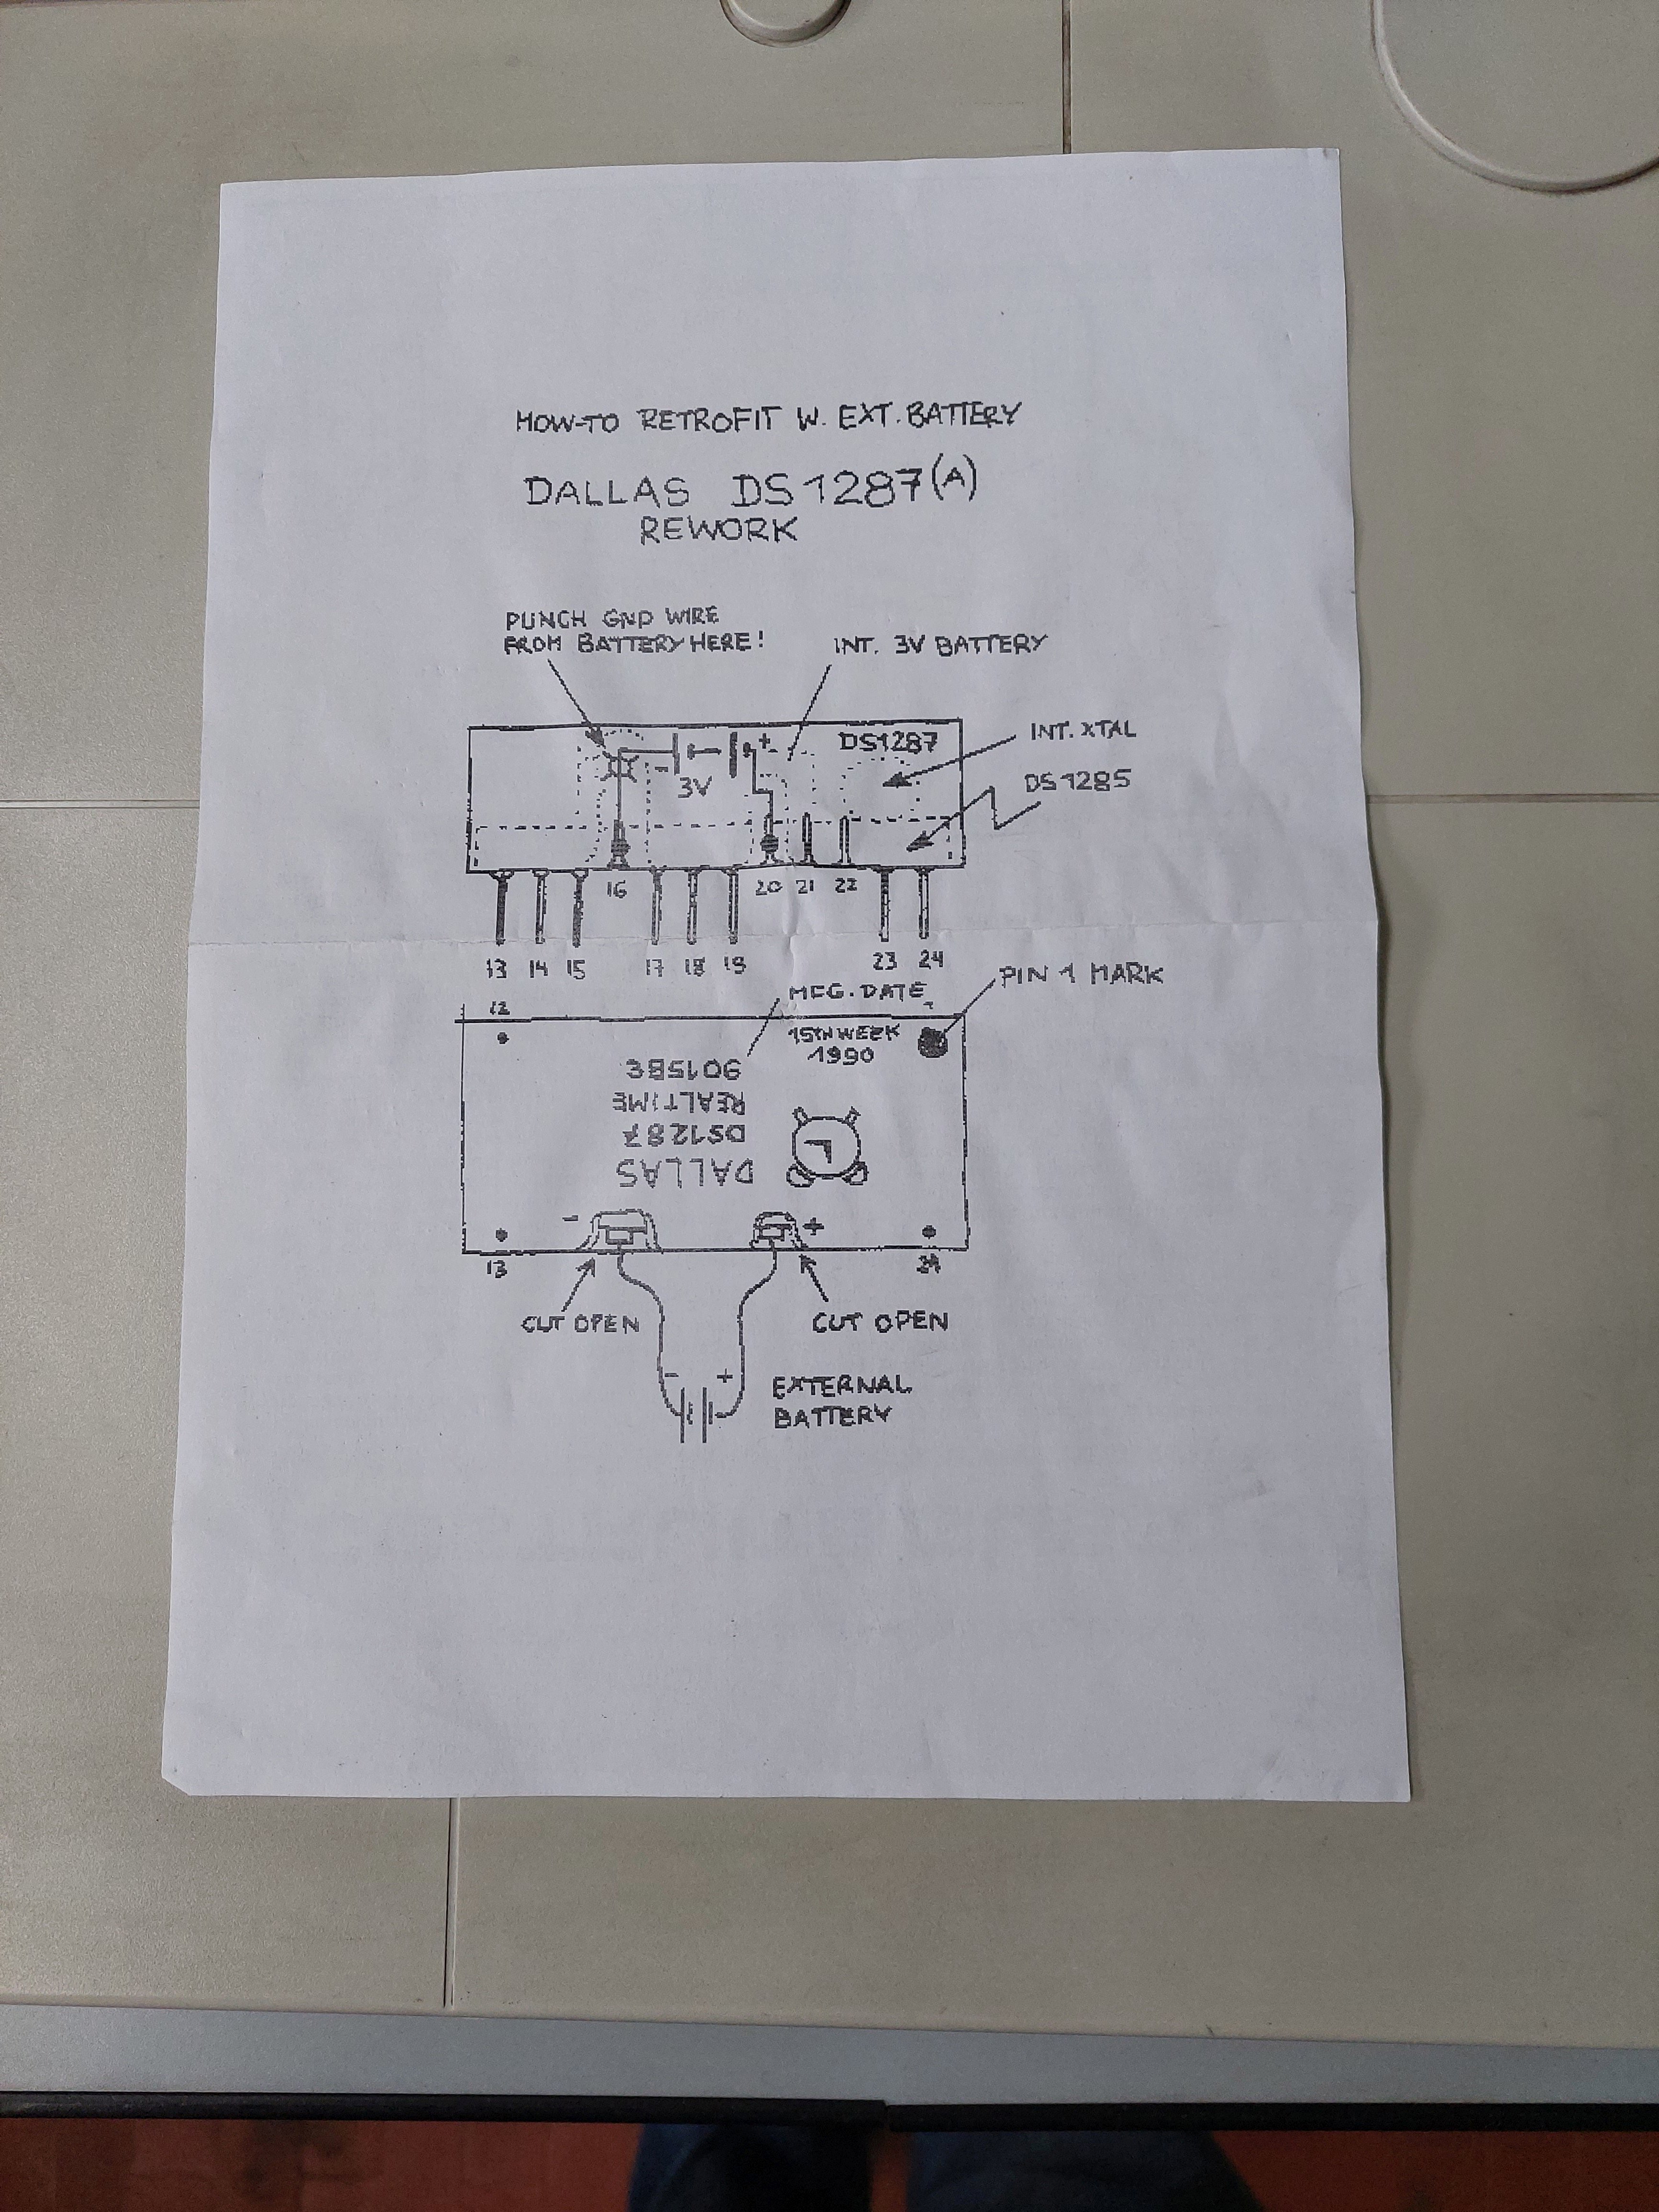 HOW-TO RETROFIT W. EXT. BATTERY
DALLAS DS1287(A)
REWORK
PUNCH GND WIRE
FROM BATTERY HERE!
INT. 3V BATTERY
INT. XTAL
DS1285
DS1287
- +
3V
16 20 21 22
13 14 15 17 18 19 23 24
MFG. DATE
PIN 1 MARK
12
15TH WEEK
1990
DALLAS
DS1287
REALTIME
- +
13 24
CUT OPEN
CUT OPEN
- +
EXTERNAL
BATTERY